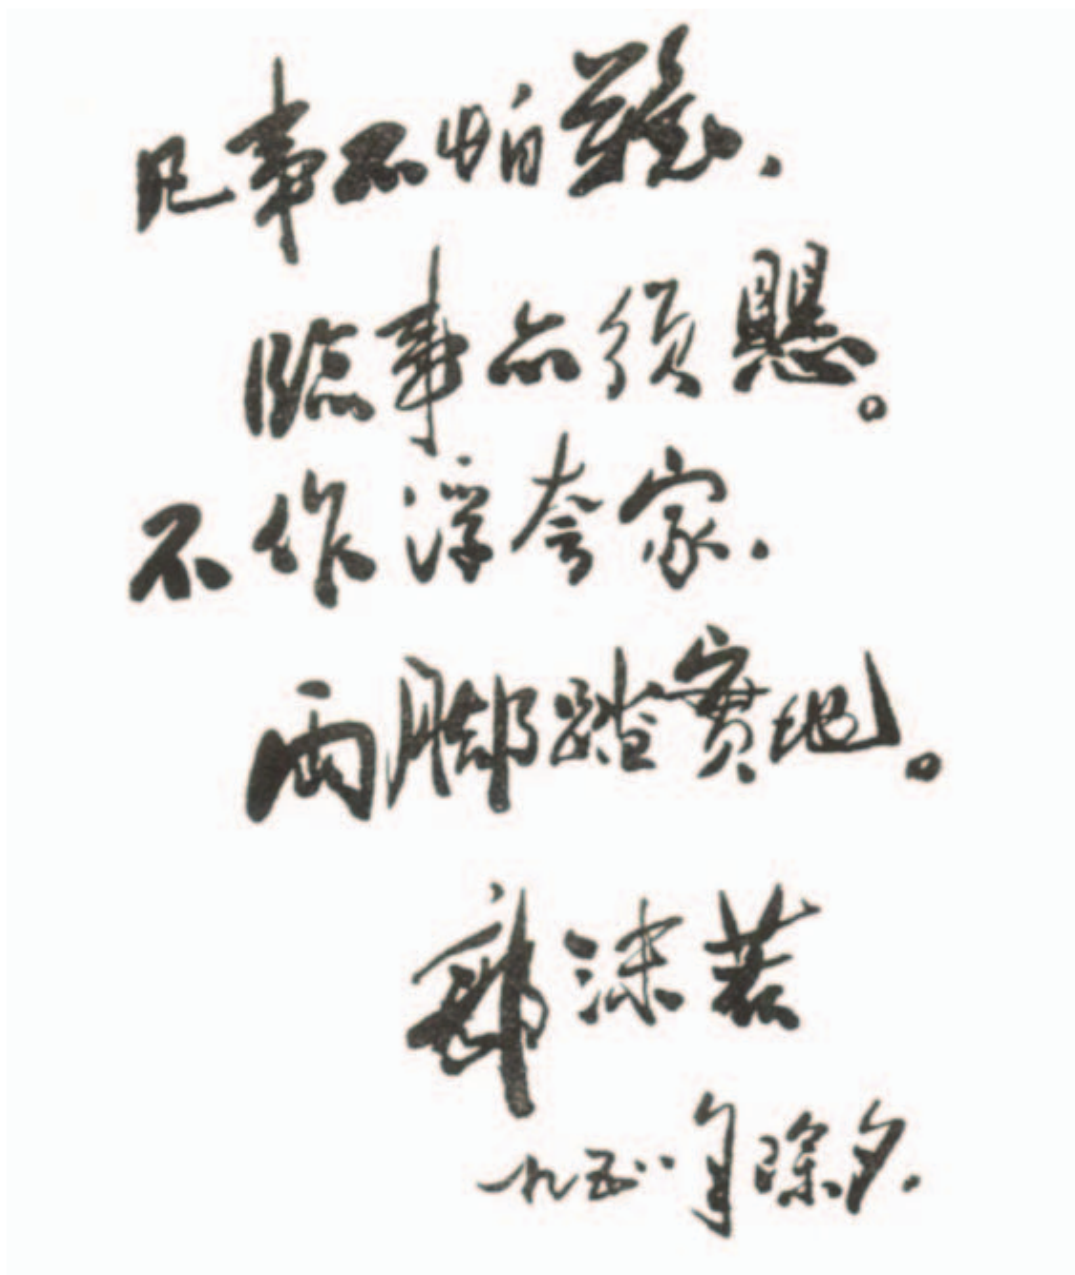 凡事不怕難，
臨事亦須愳。
不作浮夸家，
兩脚踏實地。
郭沫若
一九五八年除夕.